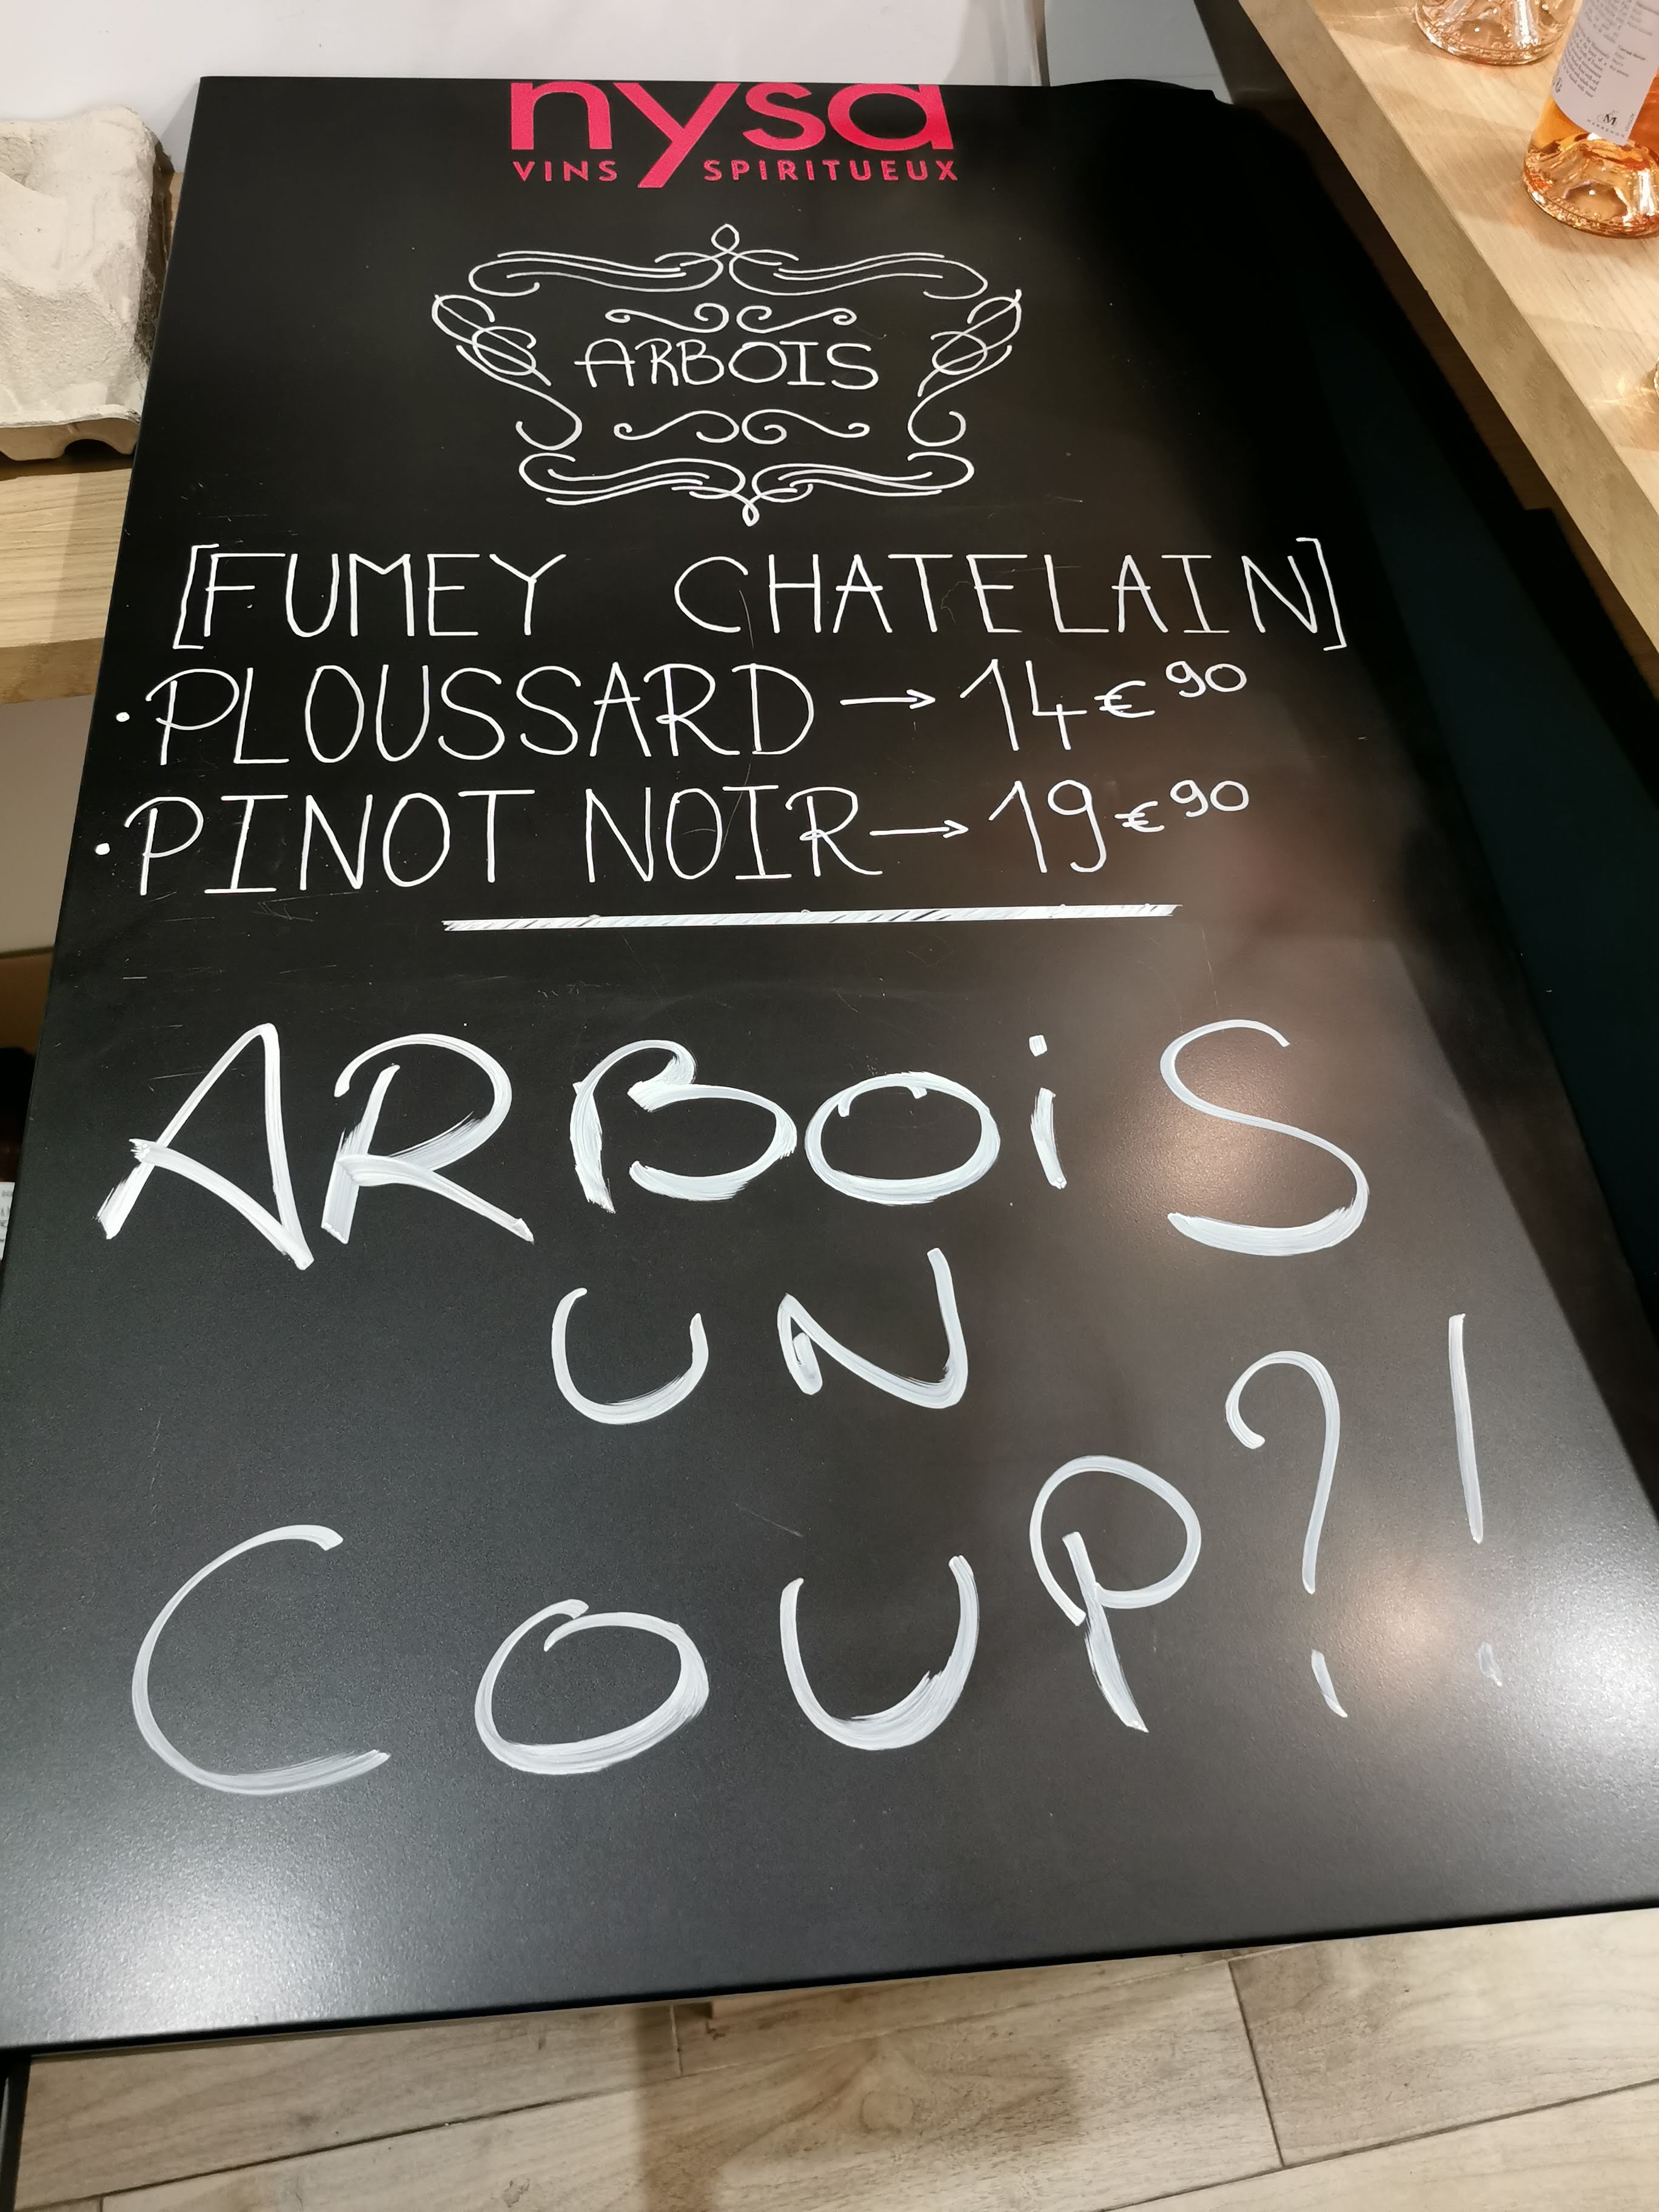 nysa
VINS SPIRITUEUX
ARBOIS
[FUMEY CHATELAIN]
• PLOUSSARD → 14€90
• PINOT NOIR → 19€90
ARBOiS
UN
COUP?!
M